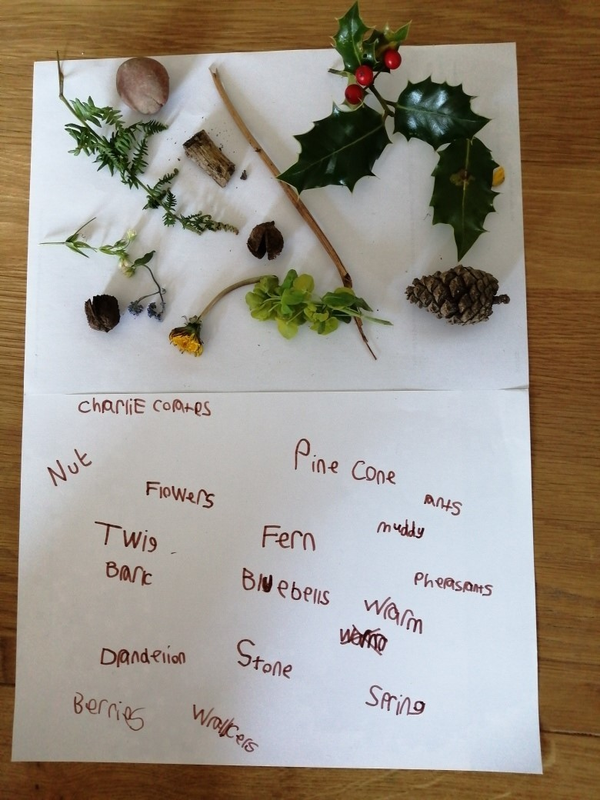 charliE coates
Nut
Pine Cone
Flowers
ants
muddy
Twig
Fern
Bark
Bluebells
Pheasants
warm
Dandelion
Stone
Spring
Berries
Walkers